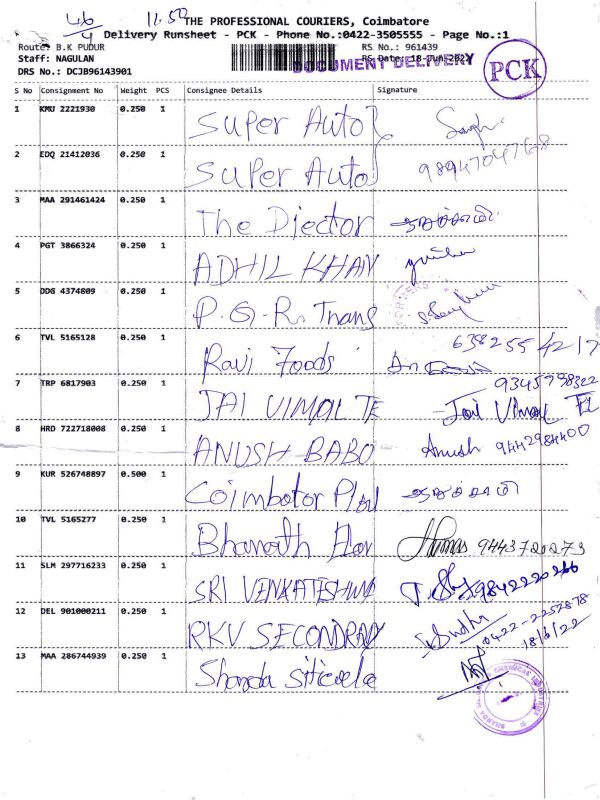 46
4
11.50
THE PROFESSIONAL COURIERS, Coimbatore
Delivery Runsheet - PCK - Phone No.:0422-3505555 - Page No.:1
Route: B.K PUDUR RS No.: 961439
Staff: NAGULAN RS Date: 18-Jun-2022
DRS No.: DCJB96143901
DOCUMENT DELIVERY
PCK
S No Consignment No Weight PCS Consignee Details Signature
1 KMU 2221930 0.250 1 Super Auto
2 EDQ 21412036 0.250 1 Super Auto 9894704768
3 MAA 291461424 0.250 1 The Director
4 PGT 3866324 0.250 1 ADHIL KHAN
5 DDG 4374809 0.250 1 P.G.R. Trans
6 TVL 5165128 0.250 1 Ravi Foods 6382554217
7 TRP 6817903 0.250 1 JAI VIMAL TE 9345798322 Jai Vimal TE
8 HRD 722718008 0.250 1 ANUSH BABO Anush 9442984400
9 KUR 526748897 0.500 1 Coimbotor
10 TVL 5165277 0.250 1 Bharath 9443720273
11 SLM 297716233 0.250 1 SRI VENKATESHWA 9842220266
12 DEL 901000211 0.250 1 RKV SECONDRAY 0422-2252878
18/6/22
13 MAA 286744939 0.250 1 Sharda